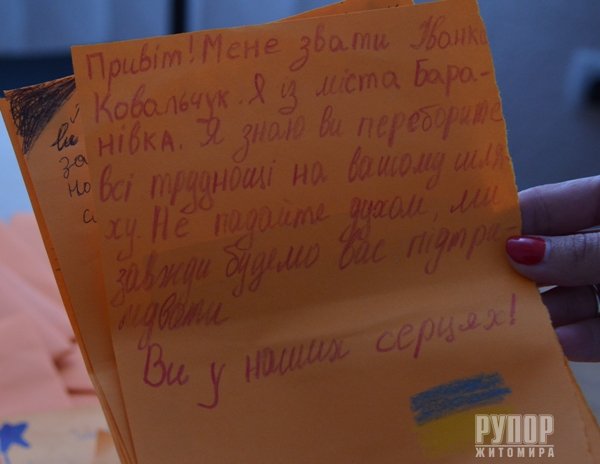 Привіт! Мене звати Іванка
Ковальчук. Я із міста Бара-
нівка. Я знаю ви переборите
всі труднощі на вашому шля
ху. Не падайте духом, ми
завжди будемо вас підтри-
мувати
Ви у наших серцях!
за
но
РУПОР
ЖИТОМИРА